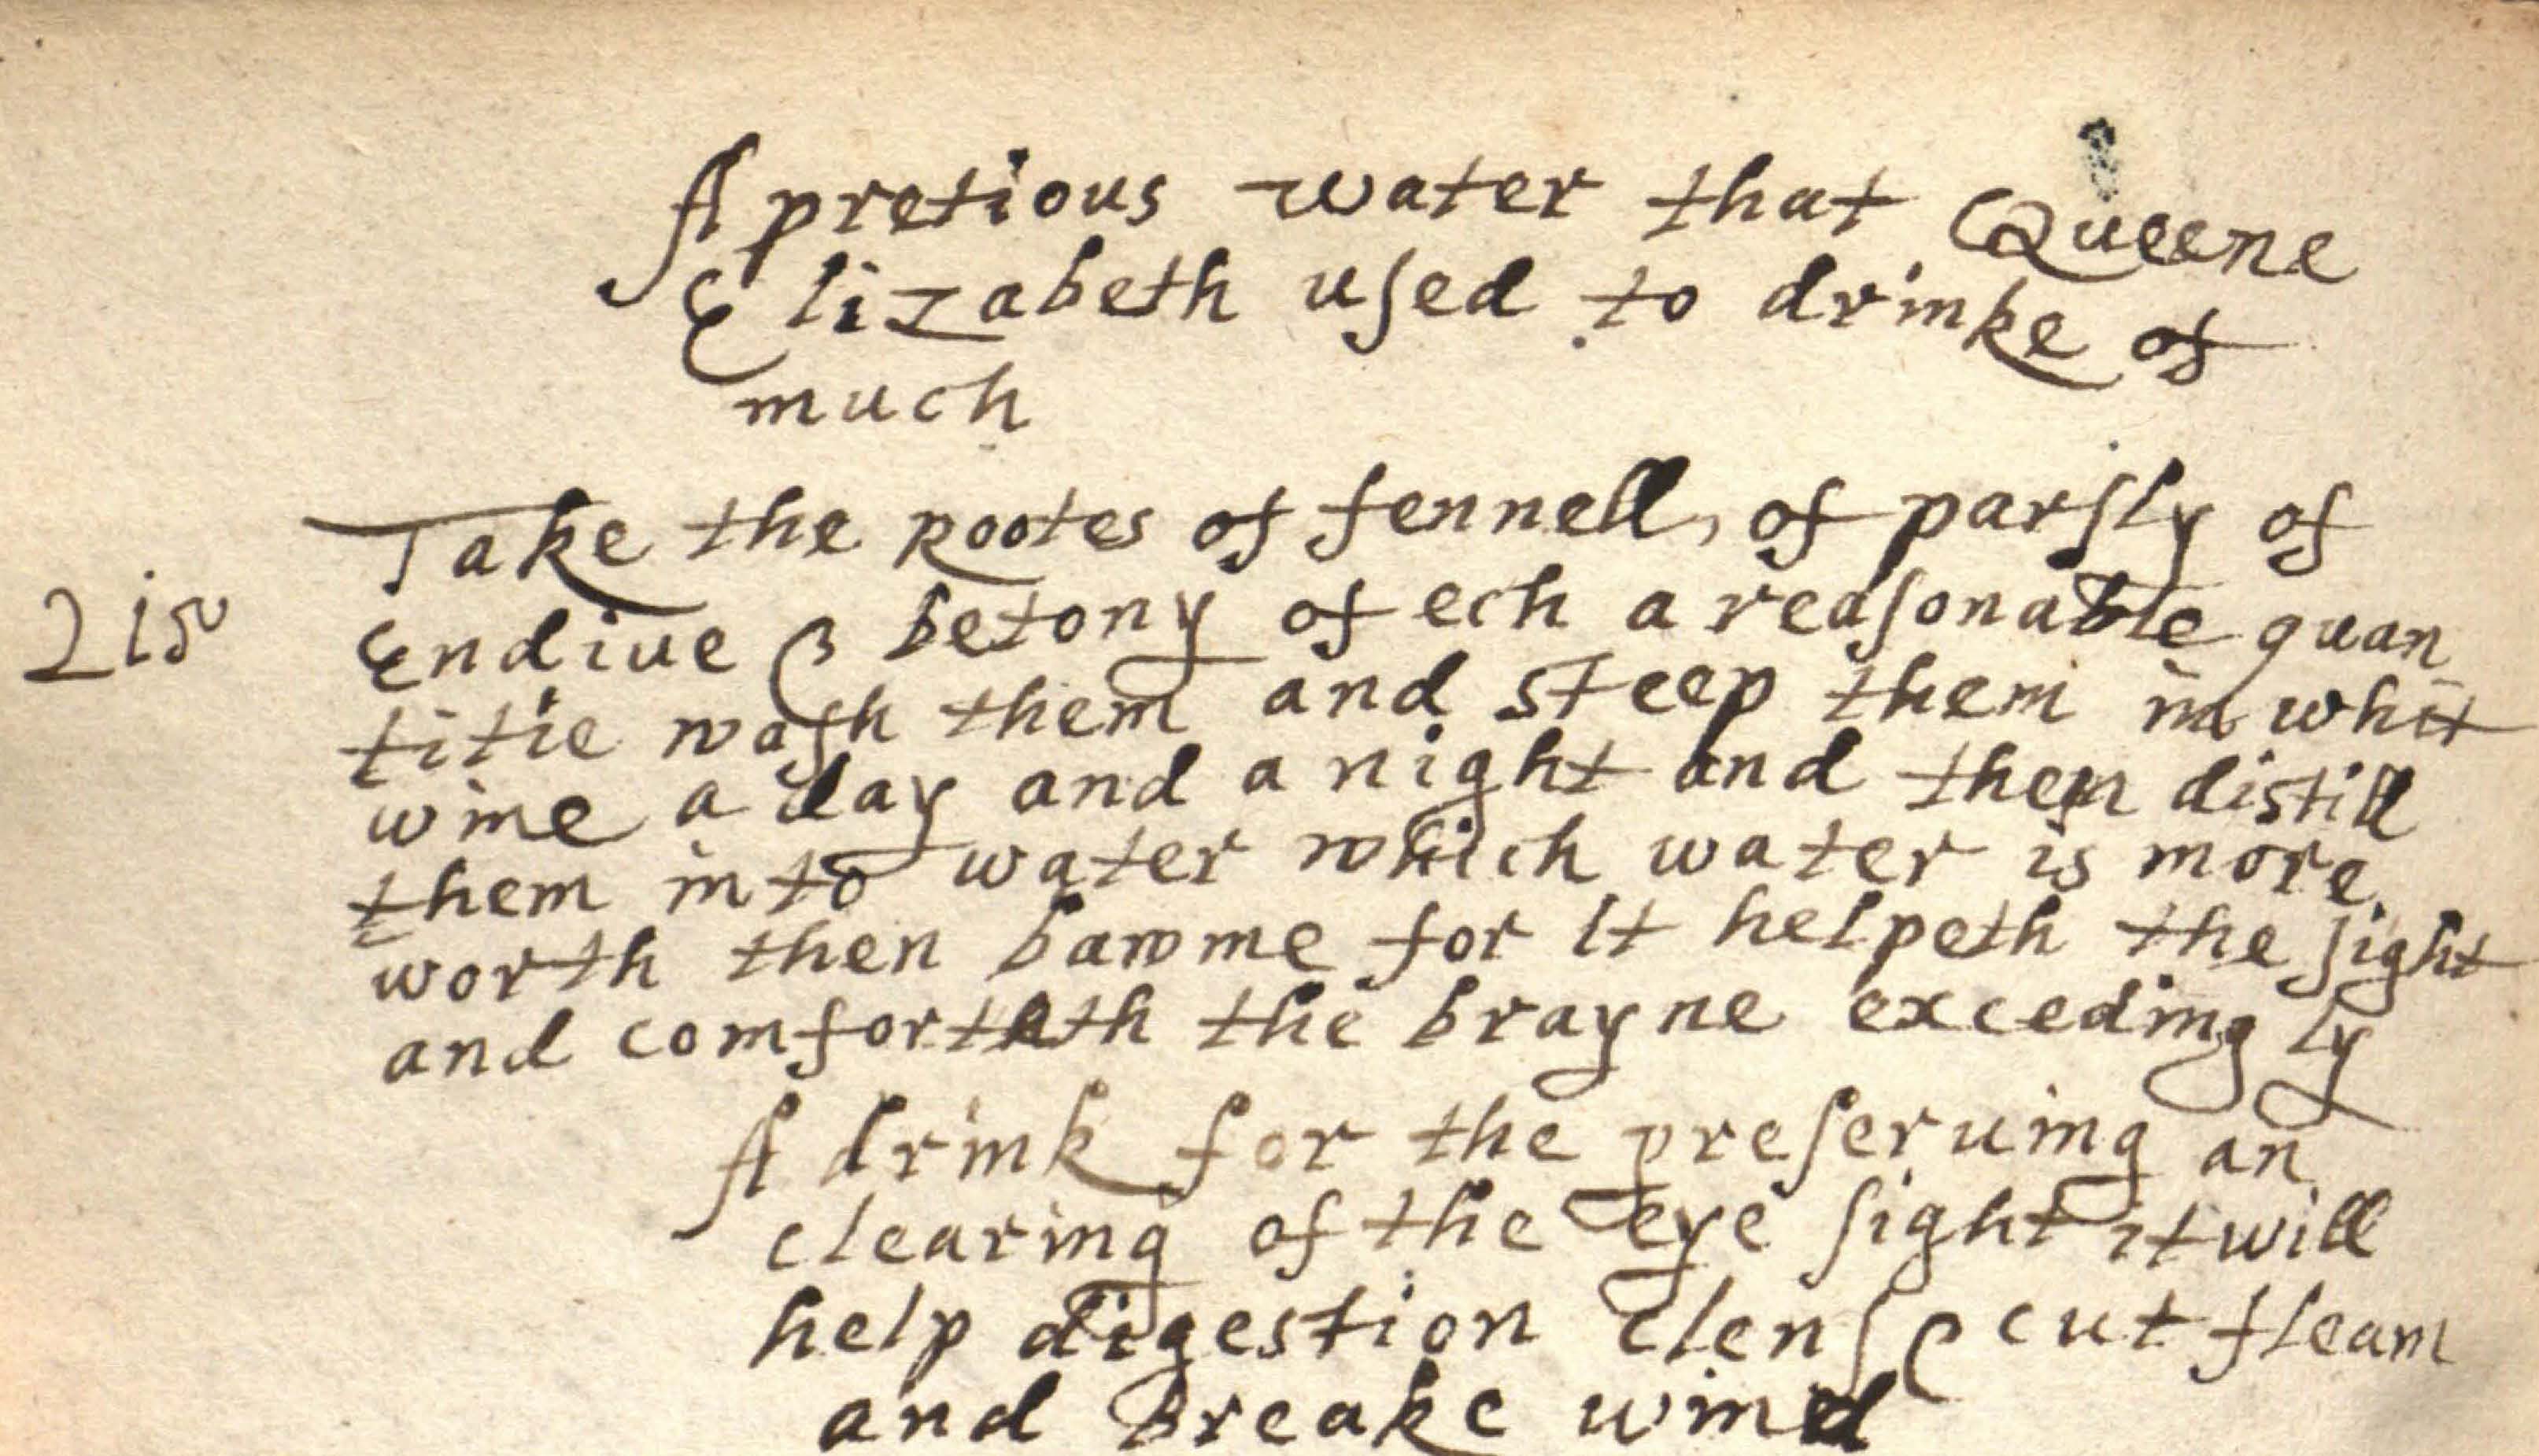 A pretious water that Queene
Elizabeth uſed to drinke of
much
Take the Rootes of fennell, of parſly of
Endiue & betony of ech a reaſonable quan
titie waſh them and steep them in whit
wine a day and a night and then distill
them into water which water is more
worth then bawme for it helpeth the ſight
and comforteth the brayne excedingly
A drink for the preſeruing an
clearing of the eye ſight it will
help digestion clenſe cut fleam
and Breake wind